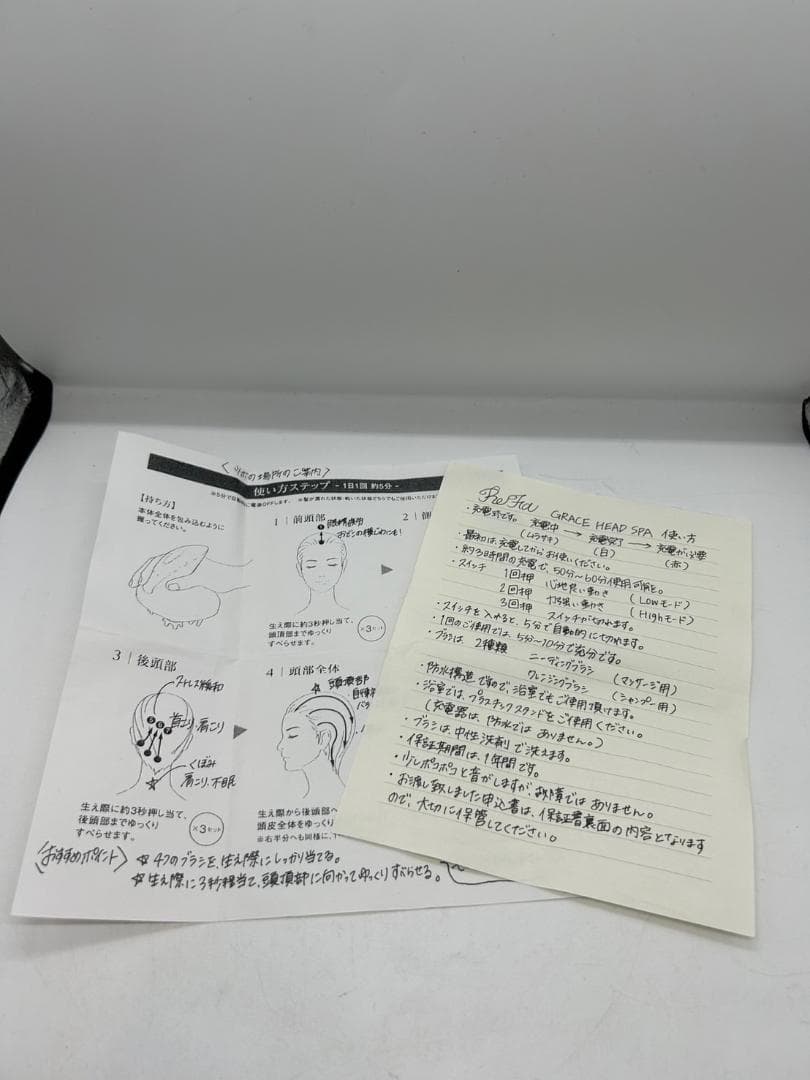 使い方ステップ - 1日1回 約5分 -
【持ち方】
本体全体を包み込むように
握ってください。
1 | 前頭部
おでこの横じわにも!
生え際に約3秒押し当て、
頭頂部までゆっくり
すべらせます。
×3セット
2 |
3 | 後頭部
ストレス緩和
首こり 肩こり
くぼみ
肩こり、不眠
生え際に約3秒押し当て、
後頭部までゆっくり
すべらせます。
×3セット
4 | 頭部全体
生え際から後頭部へ
頭皮全体をゆっくり
※右半分へも同様に、
(おすすめポイント) ☆ 4つのブラシを、生え際にしっかり当てる。
☆ 生え際に3秒程当て、頭頂部に向かってゆっくりすべらせる。
ReFa GRACE HEAD SPA 使い方
・充電式です。 充電中 → 充電完了 → 充電が必要
(ムラサキ) (白) (赤)
・最初は、充電してからお使いください。
・約3時間の充電で、50分〜60分使用可能。
・スイッチ 1回押 心地良い動き (Lowモード)
2回押 力強い動き (Highモード)
3回押 スイッチが切れます。
・スイッチを入れると、5分で自動的に切れます。
・1回のご使用では、5分〜10分で充分です。
・ブラシは、2種類 ニーディングブラシ (マッサージ用)
クレンジングブラシ (シャンプー用)
・防水構造ですので、浴室でもご使用頂けます。
・浴室では、プラスチックスタンドをご使用ください。
(充電器は、防水ではありません。)
・ブラシは、中性洗剤で洗えます。
・保証期間は、1年間です。
・少しポコポコと音がしますが、故障ではありません。
・お渡し致しました申込書は、保証書裏面の内容となります
ので、大切に保管してください。